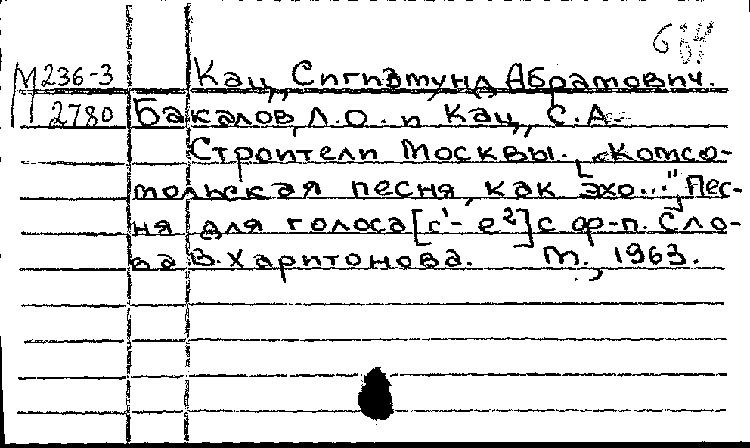 М236-3 Кац, Сигизмунд Абрамович.
2780 Бакалов, Л.О. и Кац, С.А.
Строители Москвы. ["Комсо-
мольская песня, как эхо..."] Пес-
ня для голоса [c¹- e²] с ф-п. Сло-
ва В. Харитонова. М., 1963.